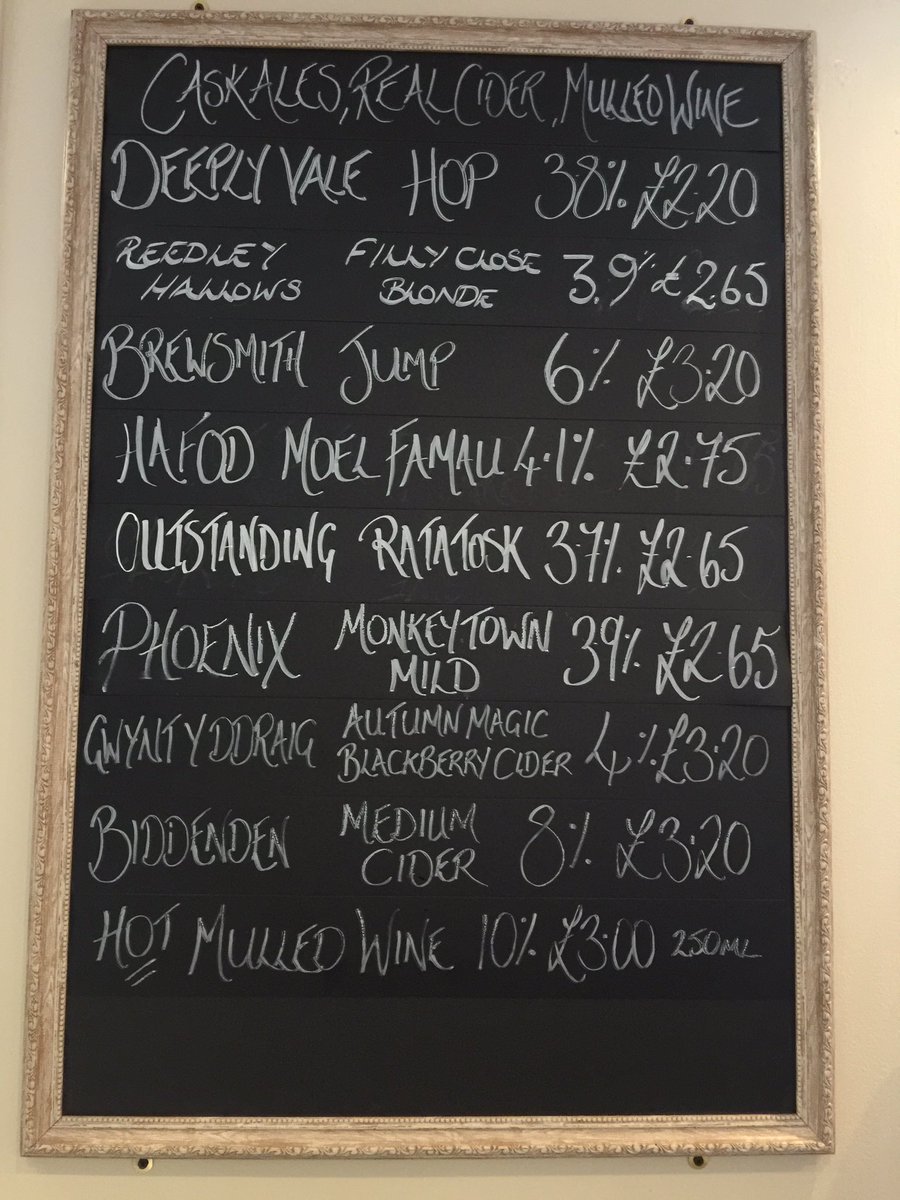 CASK ALES, REAL CIDER, MULLED WINE
DEEPLY VALE HOP 3.8% £2.20
REEDLEY HALLOWS FILLY CLOSE BLONDE 3.9% £2.65
BREWSMITH JUMP 6% £3.20
HAFOD MOEL FAMAU 4.1% £2.75
OUTSTANDING RATATOSK 3.7% £2.65
PHOENIX MONKEYTOWN MILD 39% £2.65
GWYNT Y DDRAIG AUTUMN MAGIC BLACKBERRY CIDER 4% £3.20
BIDDENDEN MEDIUM CIDER 8% £3.20
HOT MULLED WINE 10% £3.00 250ML